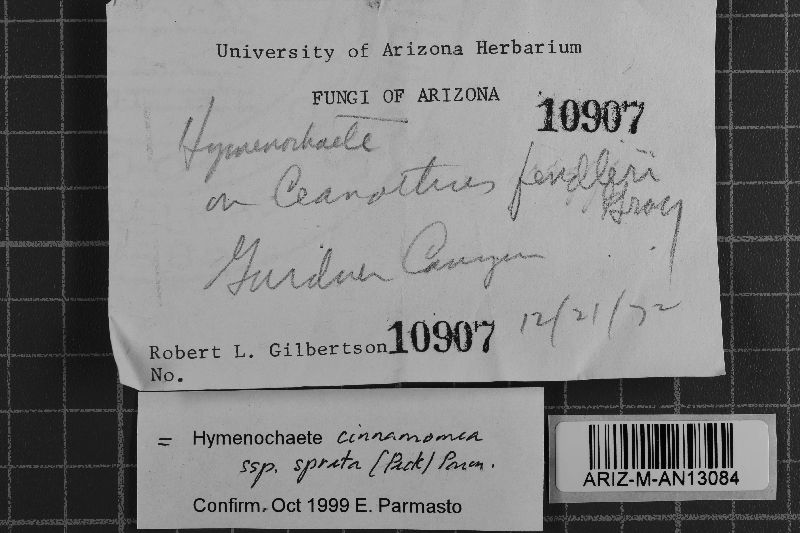 University of Arizona Herbarium
FUNGI OF ARIZONA
10907
Hymenochaete
on Ceanothus fendleri
Gray
Gardner Canyon
12/21/72
Robert L. Gilbertson 10907
No.
= Hymenochaete cinnamomea
ssp. spreta (Peck) Parm.
Confirm. Oct 1999 E. Parmasto
ARIZ-M-AN13084